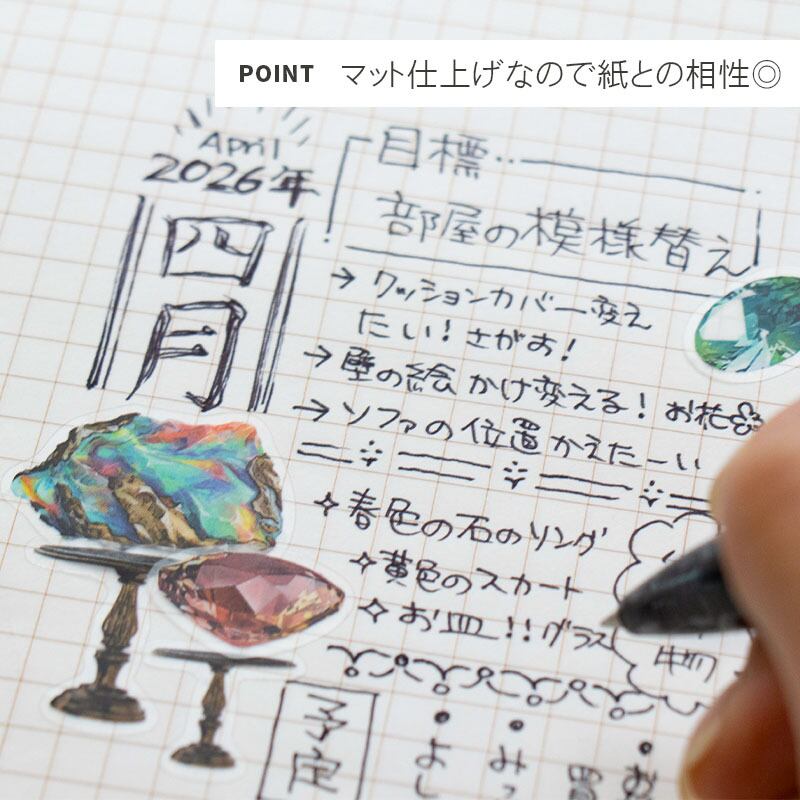 POINT マット仕上げなので紙との相性◎
April
2026年
四月
目標
部屋の模様替え
→ クッションカバー変え
たい!さがお!
→ 壁の絵かけ変える!お花
→ ソファの位置かえたーい
春色の石のリング
黄色のスカート
お皿!!グラス
物
予定
・よし
・みっ
買